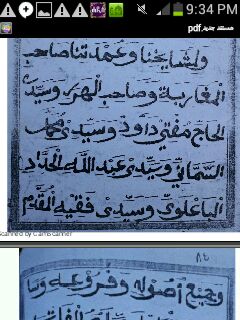 9:34 PM
مستند جديد.pdf
ولمشايخنا وعمدتنا صاحب
المغاربة وصاحب النهر وسيدي
الحاج مفتي داود وسيدي محمد
السماني وسيدي عبد الله الحداد
الباعلوي وسيدي فقيه المقدم
Scanned by CamScanner
وجميع أصوله وفروعه